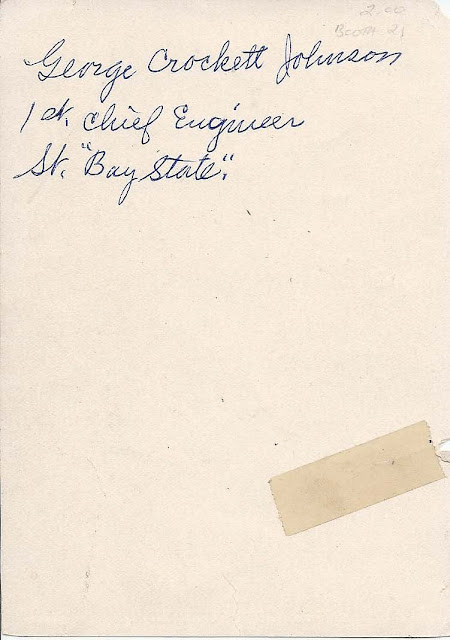 2.00
Booth 21
George Crockett Johnson
1st. Chief Engineer
St. "Bay State".